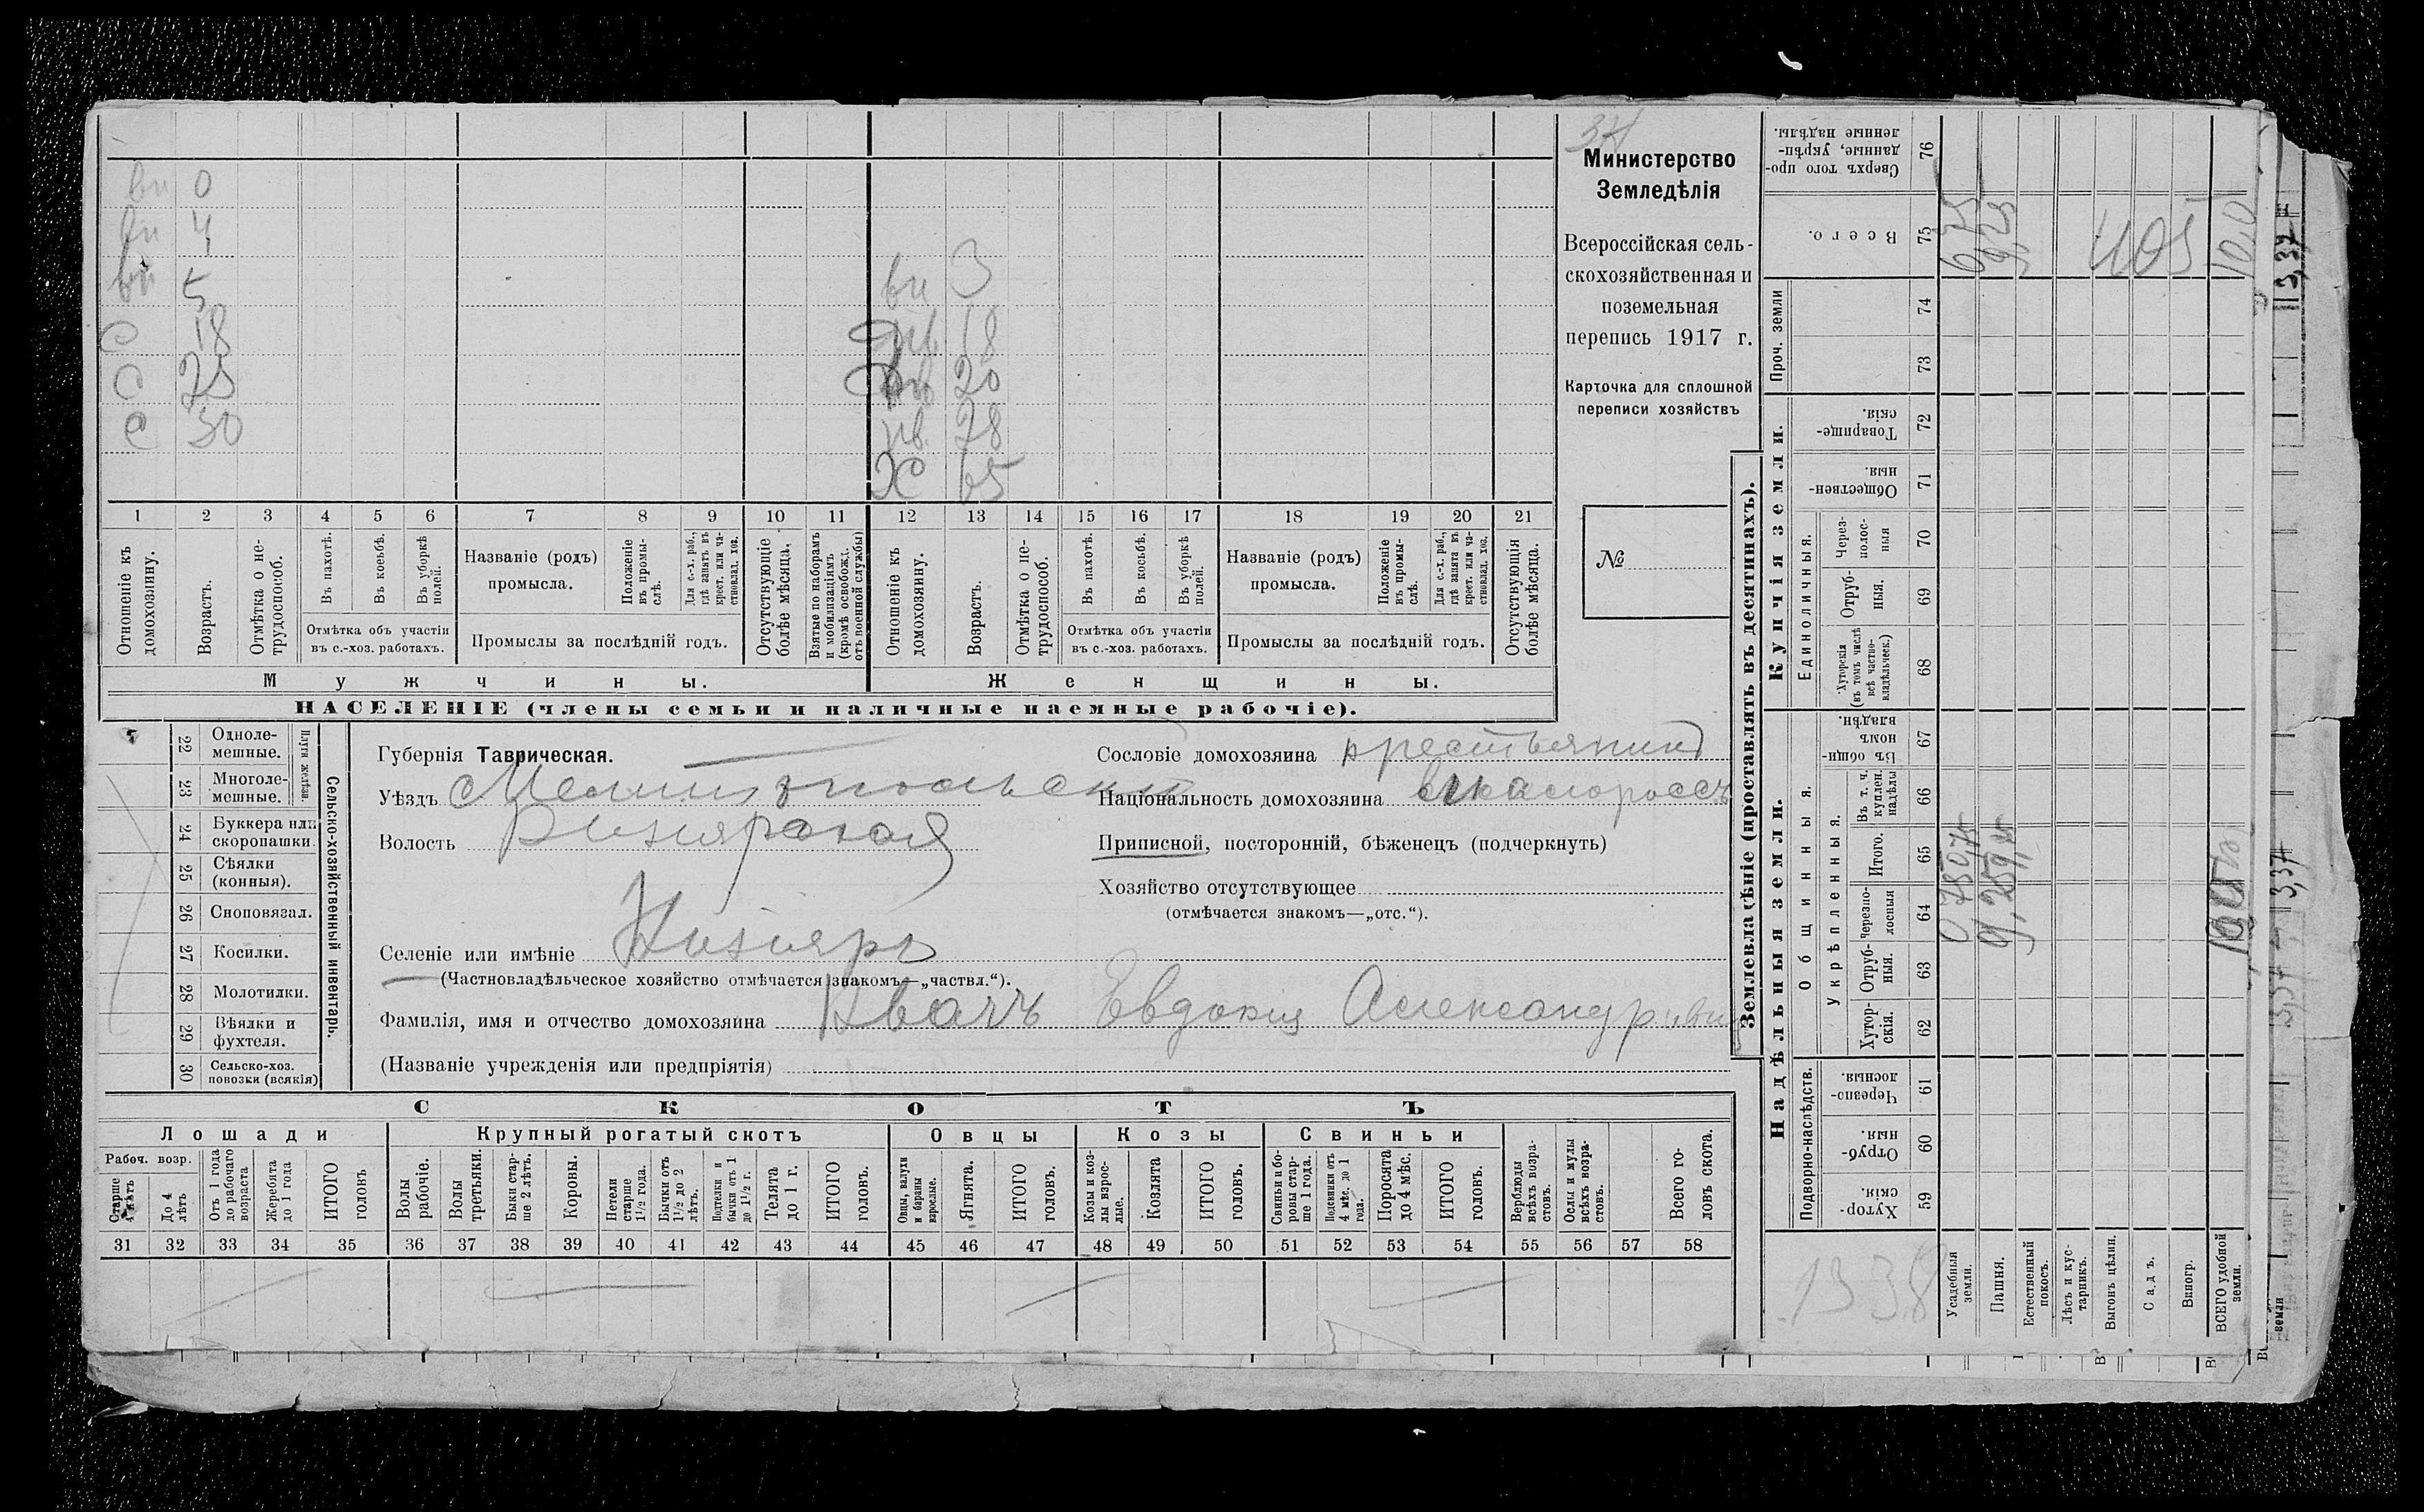 вн 0
вн 4
вн 5
с 18
с 25
с 30
вн 3
18
20
28
Х 65
1 2 3 4 5 6 7 8 9 10 11 12 13 14 15 16 17 18 19 20 21
Отношеніе къ домохозяину.
Возрастъ.
Отмѣтка о не-трудоспособ.
Въ пахотѣ.
Въ косьбѣ.
Въ уборкѣ полей.
Отмѣтка объ участіи въ с.-хоз. работахъ.
Названіе (родъ) промысла.
Положеніе въ промы-слѣ.
Для с.-х. раб., гдѣ занятъ въ крест. или ча-стновлад. хоз.
Промыслы за послѣдній годъ.
Отсутствующіе болѣе мѣсяца.
Взятые по наборамъ и мобилизаціямъ (кромѣ освобожд. отъ военной службы)
Отношеніе къ домохозяину.
Возрастъ.
Отмѣтка о не-трудоспособ.
Въ пахотѣ.
Въ косьбѣ.
Въ уборкѣ полей.
Отмѣтка объ участіи въ с.-хоз. работахъ.
Названіе (родъ) промысла.
Положеніе въ промы-слѣ.
Для с.-х. раб., гдѣ занята въ крест. или ча-стновлад. хоз.
Промыслы за послѣдній годъ.
Отсутствующія болѣе мѣсяца.
Мужчины.
Женщины.
НАСЕЛЕНІЕ (члены семьи и наличные наемные рабочіе).
Министерство
Земледѣлія
Всероссійская сель-
скохозяйственная и
поземельная
перепись 1917 г.
Карточка для сплошной
переписи хозяйствъ
№
22 Одноле-мешные.
23 Многоле-мешные.
Плуги желѣзн.
24 Буккера или скоропашки.
25 Сѣялки (конныя).
26 Сноповязал.
27 Косилки.
28 Молотилки.
29 Вѣялки и фухтеля.
30 Сельско-хоз. повозки (всякія)
Сельско-хозяйственный инвентарь.
Губернія Таврическая.
Уѣздъ Мелитопольский
Волость
Селеніе или имѣніе
(Частновладѣльческое хозяйство отмѣчается знакомъ—„частвл.“).
Фамилія, имя и отчество домохозяина Квачъ Евдокія Александр
(Названіе учрежденія или предпріятія)
Сословіе домохозяина крестьянин
Національность домохозяина
Приписной, посторонній, бѣженецъ (подчеркнуть)
Хозяйство отсутствующее
(отмѣчается знакомъ—„отс.“).
СКОТЪ
Лошади
Крупный рогатый скотъ
Овцы
Козы
Свиньи
Рабоч. возр.
Старше 4 лѣтъ
До 4 лѣтъ
Отъ 1 года до рабочаго возраста
Жеребята до 1 года
ИТОГО головъ
Волы рабочіе.
Волы третьяки.
Быки стар-ше 2 лѣтъ.
Коровы.
Нетели старше 1½ года.
Бычки отъ 1½ до 2 лѣтъ.
Подтелки и бычки отъ 1 до 1½ г.
Телята до 1 г.
ИТОГО головъ.
Овцы, валухи и бараны взрослые.
Ягнята.
ИТОГО головъ.
Козы и коз-лы взрос-лые.
Козлята
ИТОГО головъ.
Свиньи и бо-ровы стар-ше 1 года.
Подсвинки отъ 4 мѣс. до 1 года.
Поросята до 4 мѣс.
ИТОГО головъ.
Верблюды всѣхъ возра-стовъ.
Ослы и мулы всѣхъ возра-стовъ.
Всего го-ловъ скота.
31 32 33 34 35 36 37 38 39 40 41 42 43 44 45 46 47 48 49 50 51 52 53 54 55 56 57 58
Землевладѣніе (проставлять въ десятинахъ).
Купчія земли.
Надѣльныя земли.
Сверхъ того про-данные, укрѣп-ленные надѣлы. 76
Всего. 75
Проч. земли 74 73
Товарище-скія. 72
Обществен-ныя. 71
Единоличныя.
Через-полос-ныя 70
Отруб-ныя. 69
Хуторскія (въ томъ числѣ всѣ частно-владѣльческ.) 68
Общинныя.
Въ общи-номъ владѣн. 67
Въ т. ч. куплен. надѣлы 66
Укрѣпленныя.
Итого. 65
Черезпо-лосныя 64
Отруб-ныя. 63
Хутор-скія. 62
Подворно-наслѣдств.
Черезпо-лосныя. 61
Отруб-ныя. 60
Хутор-скія. 59
1338
Усадебныя земли.
Пашня.
Естественный покосъ.
Лѣсъ и кус-тарникъ.
Выгонъ цѣлин.
Садъ.
Виногр.
ВСЕГО удобной земли.
9,25
405
земли